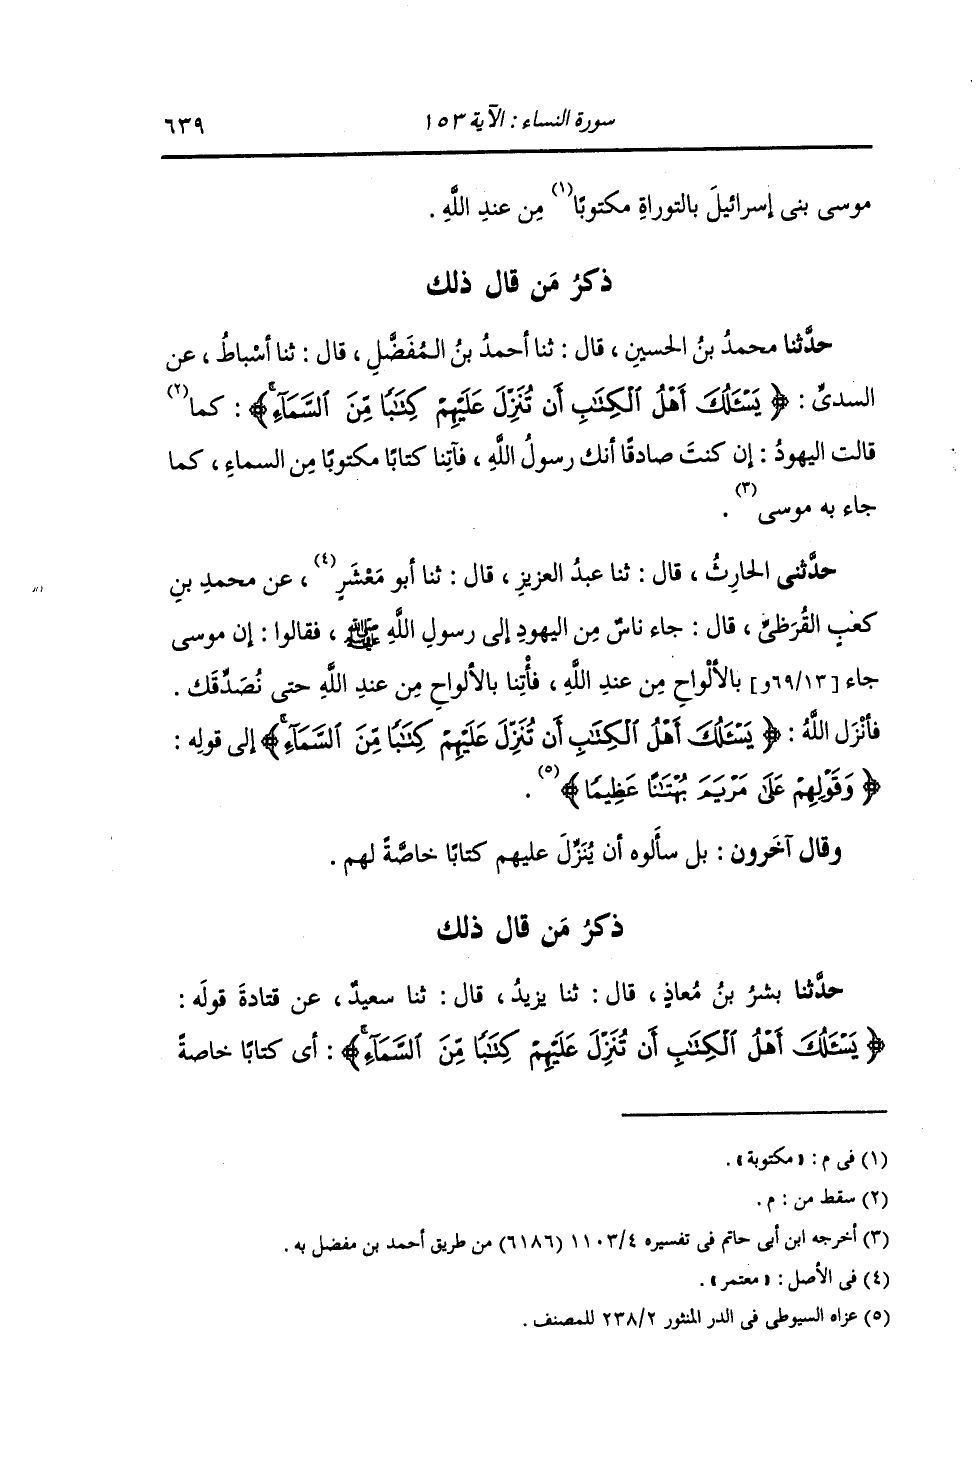 سورة النساء : الآية ١٥٣
٦٣٩
موسى بنى إسرائيلَ بالتوراةِ مكتوبًا(١) مِن عندِ اللَّهِ .
ذكرُ مَن قال ذلك
حدَّثنا محمدُ بنُ الحسينِ ، قال : ثنا أحمدُ بنُ المُفَضَّلِ ، قال : ثنا أسْباطُ ، عن
السدىِّ : ﴿ يَسْـَٔلُكَ أَهْلُ ٱلْكِتَٰبِ أَن تُنَزِّلَ عَلَيْهِمْ كِتَٰبًا مِّنَ ٱلسَّمَآءِۚ ﴾ : كما(٢)
قالت اليهودُ : إن كنتَ صادقًا أنك رسولُ اللَّهِ ، فآتِنا كتابًا مكتوبًا مِن السماءِ ، كما
جاء به موسى(٣) .
حدَّثنى الحارثُ ، قال : ثنا عبدُ العزيزِ ، قال : ثنا أبو مَعْشَرٍ(٤) ، عن محمدِ بنِ
كعبٍ القُرَظىِّ ، قال : جاء ناسٌ مِن اليهودِ إلى رسولِ اللَّهِ ﷺ ، فقالوا : إن موسى
جاء [٦٩/١٣و] بالألْواحِ مِن عندِ اللَّهِ ، فأْتِنا بالألواحِ مِن عندِ اللَّهِ حتى نُصَدِّقَك .
فأنْزَل اللَّهُ : ﴿ يَسْـَٔلُكَ أَهْلُ ٱلْكِتَٰبِ أَن تُنَزِّلَ عَلَيْهِمْ كِتَٰبًا مِّنَ ٱلسَّمَآءِۚ ﴾ إلى قولِه :
﴿ وَقَوْلِهِمْ عَلَىٰ مَرْيَمَ بُهْتَٰنًا عَظِيمًا ﴾(٥) .
وقال آخَرون : بل سألوه أن يُنَزِّلَ عليهم كتابًا خاصَّةً لهم .
ذكرُ مَن قال ذلك
حدَّثنا بشرُ بنُ مُعاذٍ ، قال : ثنا يزيدُ ، قال : ثنا سعيدٌ ، عن قتادةَ قولَه :
﴿ يَسْـَٔلُكَ أَهْلُ ٱلْكِتَٰبِ أَن تُنَزِّلَ عَلَيْهِمْ كِتَٰبًا مِّنَ ٱلسَّمَآءِۚ ﴾ : أى كتابًا خاصةً
(١) فى م : « مكتوبة » .
(٢) سقط من : م .
(٣) أخرجه ابن أبى حاتم فى تفسيره ١١٠٣/٤ (٦١٨٦) من طريق أحمد بن مفضل به .
(٤) فى الأصل : « معتمر » .
(٥) عزاه السيوطى فى الدر المنثور ٢٣٨/٢ للمصنف .